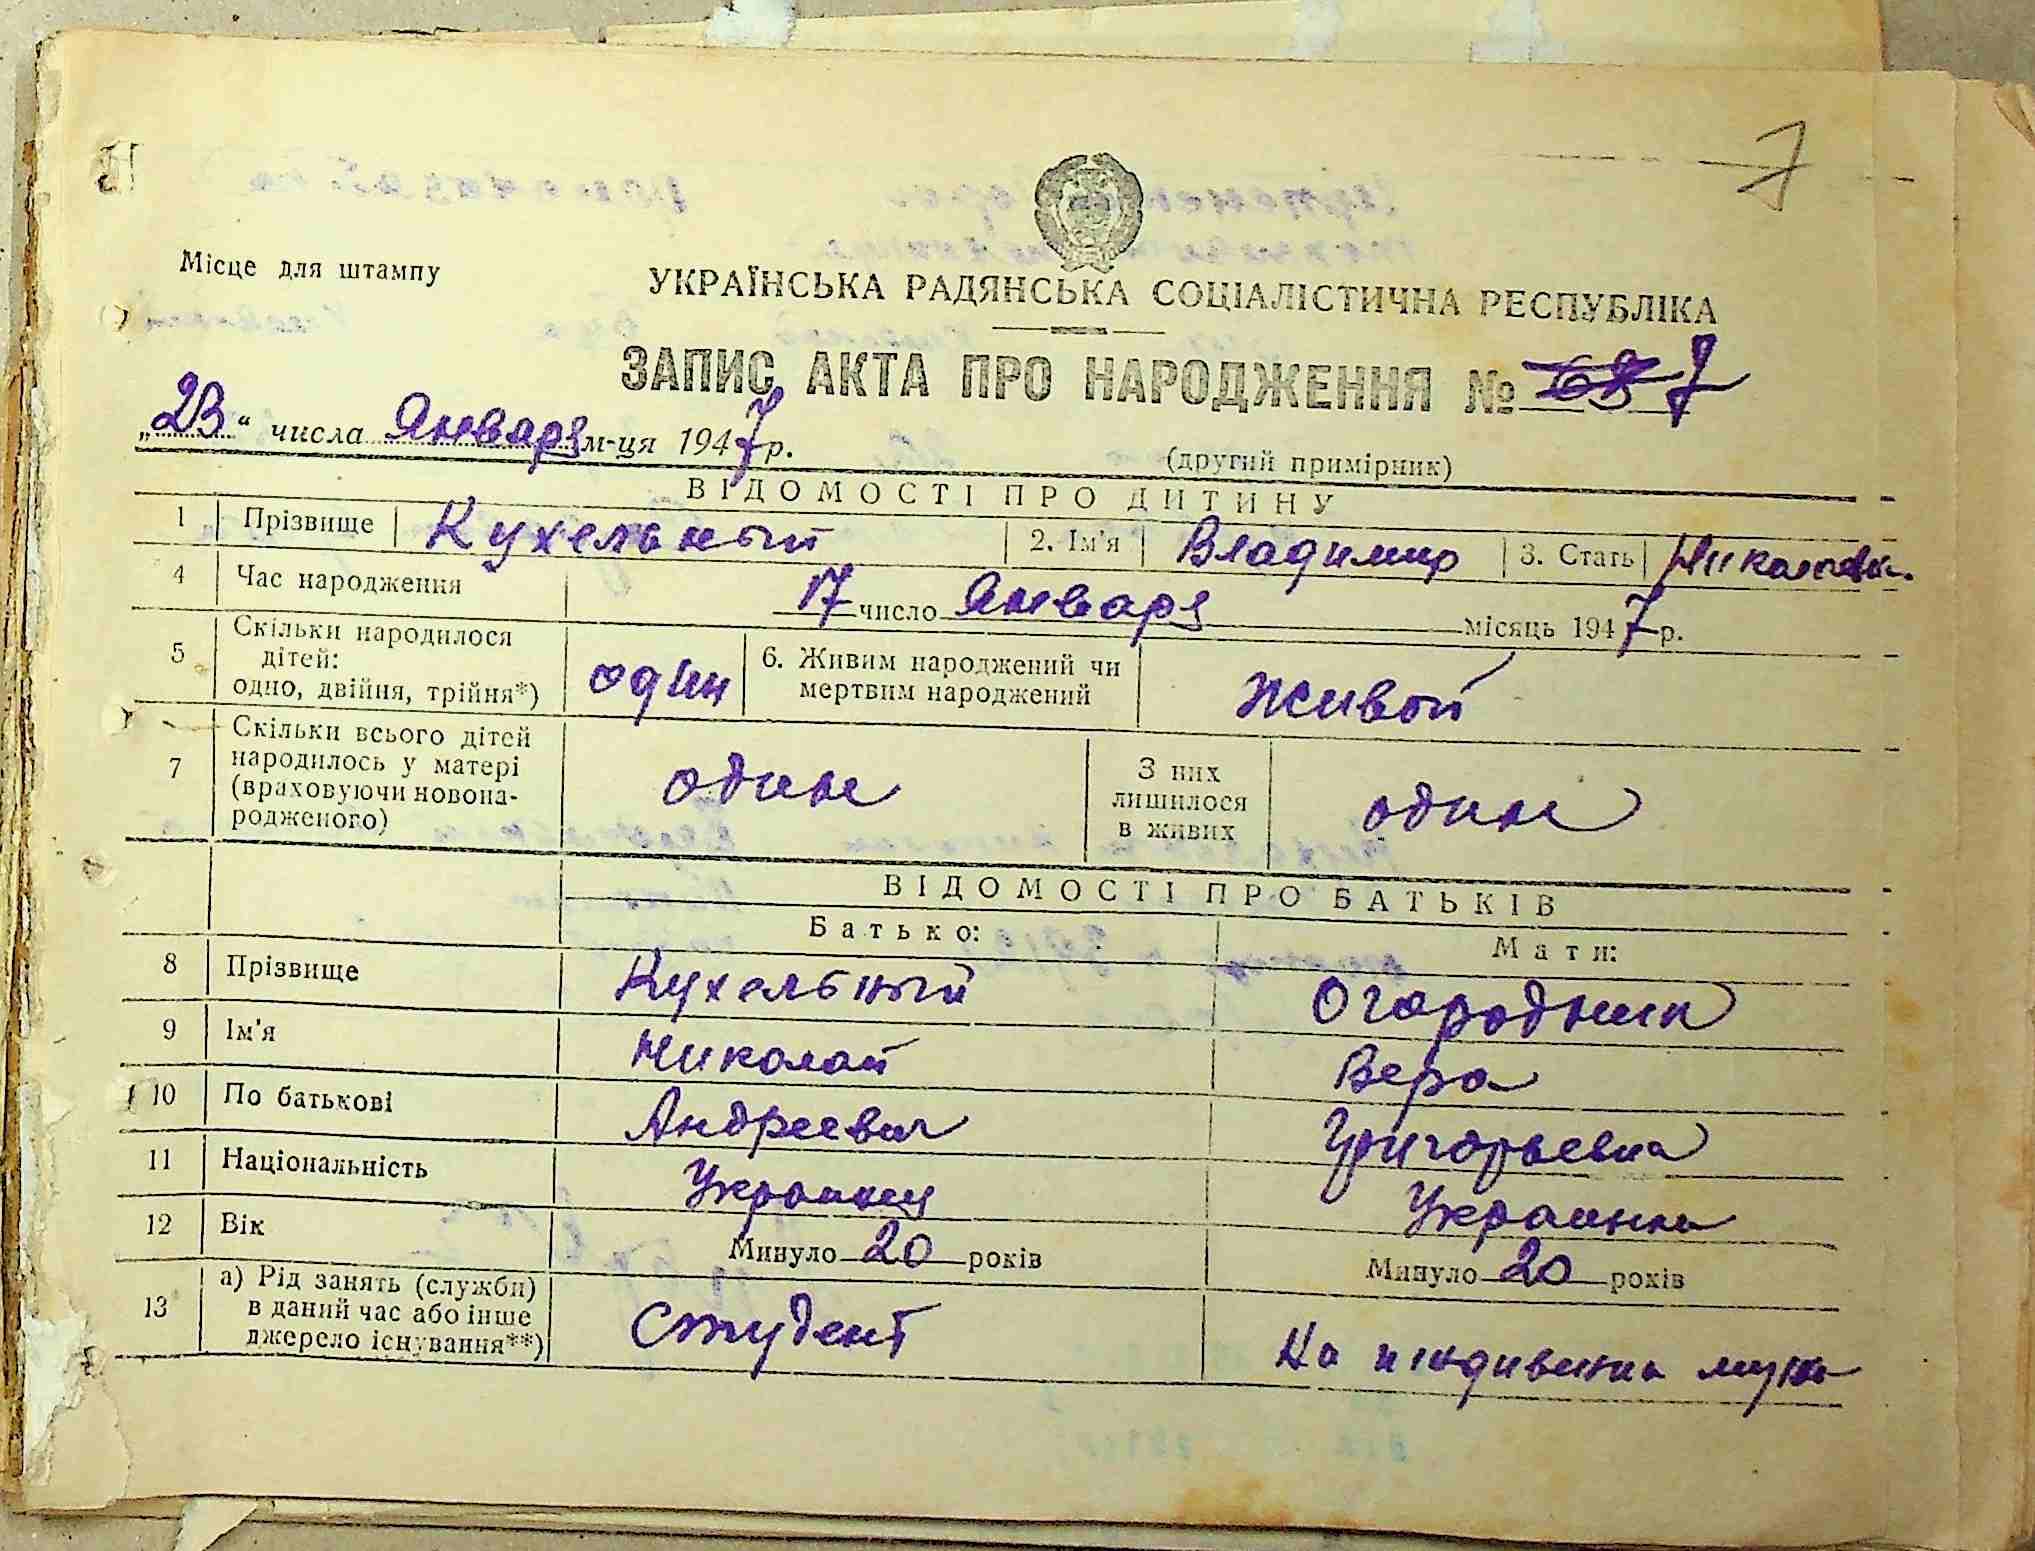 7
Місце для штампу
УКРАЇНСЬКА РАДЯНСЬКА СОЦІАЛІСТИЧНА РЕСПУБЛІКА
ЗАПИС АКТА ПРО НАРОДЖЕННЯ № 7
„23“ числа Января м-ця 1947 р.
(другий примірник)
ВІДОМОСТІ ПРО ДИТИНУ
1 Прізвище Кухельный 2. Ім'я Владимир 3. Стать Николаев.
4 Час народження 17 число Января місяць 1947 р.
5 Скільки народилося дітей: одно, двійня, трійня*) один 6. Живим народжений чи мертвим народжений живой
7 Скільки всього дітей народилось у матері (враховуючи новонародженого) один З них лишилося в живих один
ВІДОМОСТІ ПРО БАТЬКІВ
Батько: Мати:
8 Прізвище Кухельный Огородник
9 Ім'я Николай Вера
10 По батькові Андреевич Григорьевна
11 Національність Украинец Украинка
12 Вік Минуло 20 років Минуло 20 років
13 а) Рід занять (служби) в даний час або інше джерело існування**) студент На иждивении мужа